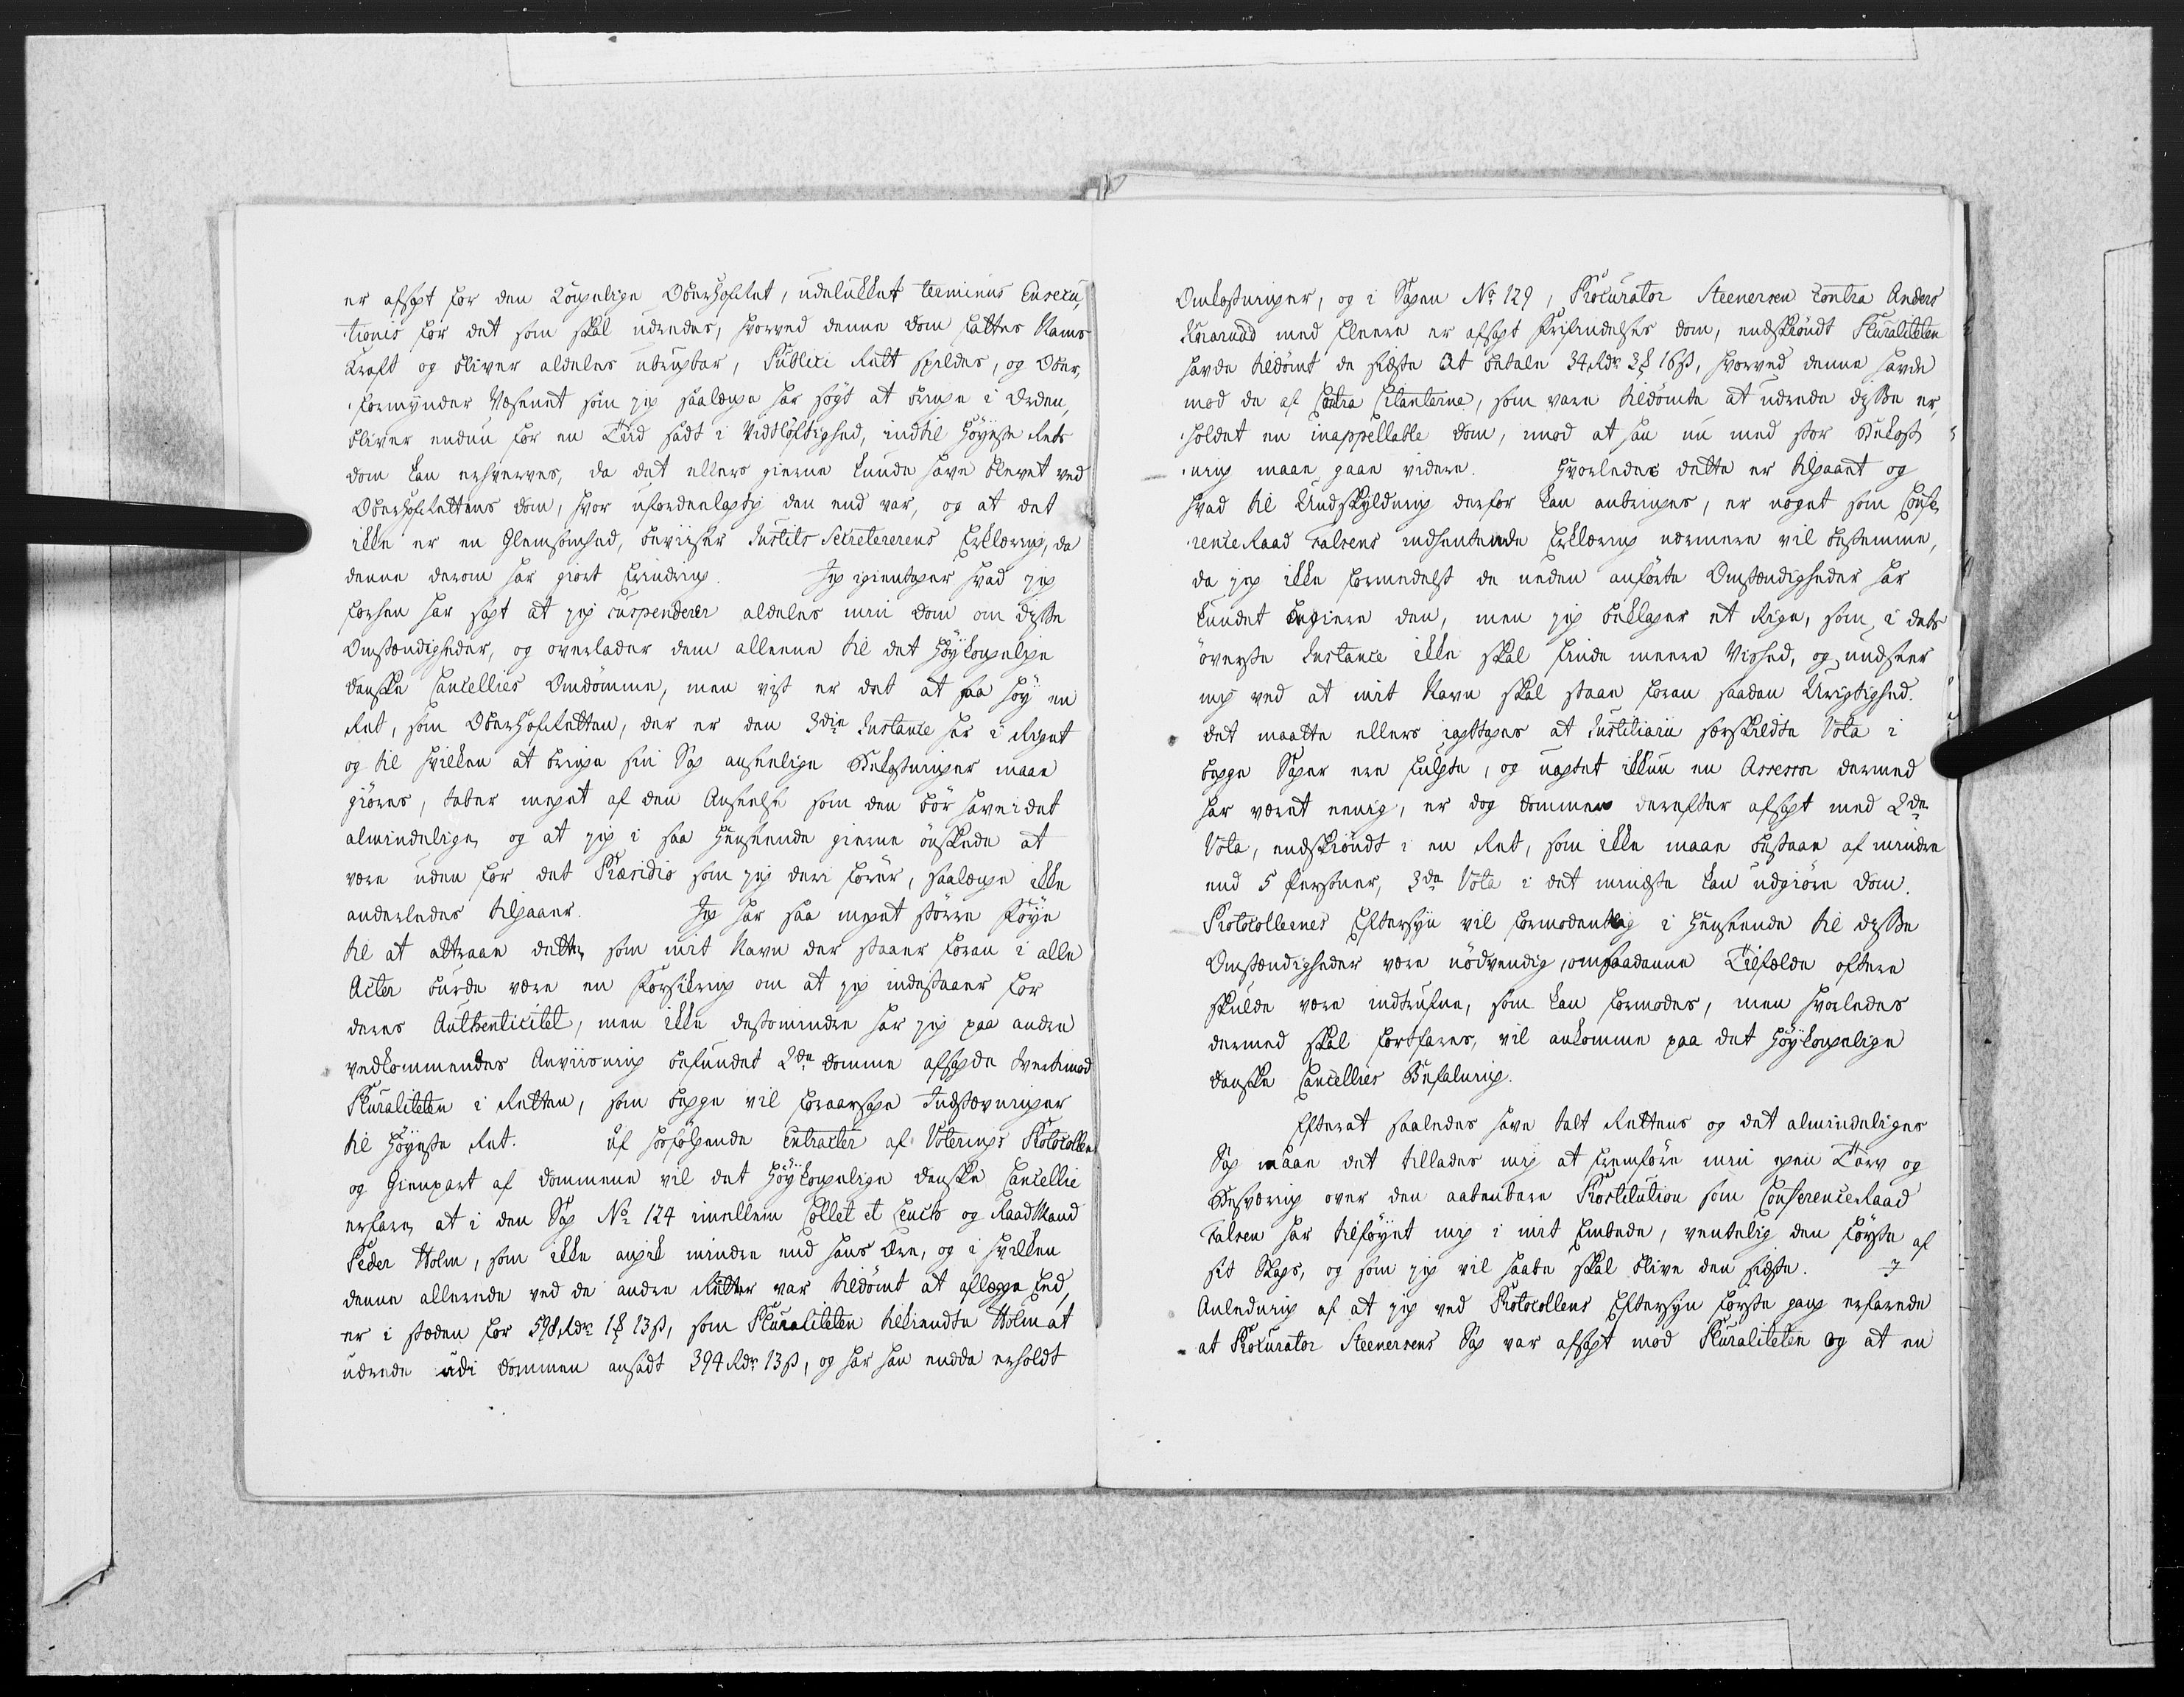 er afsagt for den Kongelige OberHofRet, udelukket terminus Exsecu,
tionis for det som skal udredes, hvorved denne Dom fattes Navns
Kraft og bliver aldeles ubrugbar, Publici Rett spildes, og Ober,
formynder Væsenet som jeg saalænge har søgt at bringe i Orden,
bliver endnu for en Tiid sadt i Vidtløftighed, indtil Høyeste Rets
Dom kan erhverves, da det ellers gierne kunde have blevet ved
OberhofRettens Dom, hvor ufordeelagtig den end var, og at det
ikke er en Glemsomhed, beviiser Justits Secreterens Erklæring, da
denne derom har giort Erindring. Jeg igientager hvad jeg
forhen har sagt at jeg suspenderer aldeles min Dom om disse
Omstændigheder, og overlader dem alleene til det Høykongelige
danske Cancellies Omdømme, men vist er det at saa høy en
Ret, som OberHofRetten, der er den 3die Instance her i Riget
og til hvilken at bringe sin Sag anseelige Bekostninger maae
giøres, taber meget af den Anseelse som den bør have i det
almindelige, og at jeg i saa Henseende gierne ønskede at
være uden for det Præsidio som jeg deri fører, saalænge ikke
anderledes tilgaaer. Jeg har saa meget større Føye
til at attraae dette, som mit Navn der staaer foran i alle
Acter burde være en Forsikring om at jeg indestaaer for
deres Authenticitet, men ikke destomindre har jeg paa andre
vedkommendes Anviisning befundet 2de Domme afsagde tvertimod
Pluraliteten i Retten, som begge vil foraarsage Indstævninger
til Høyeste Ret. Af hosfølgende Extracter af Voterings Protocollen
og Gienpart af Dommene vil det Høykongelige danske Cancellie
erfare, at i den Sag No 124 imellem Collet et Leuch og RaadMand
Peder Holm, som ikke angik mindre end hans Ære, og i hvilken
denne allerede ved de andre Retter var tildømt at aflægge Eed,
er i stæden for 598 Rdr 1 ₰ 13 ß, som Pluraliteten tilkiendte Holm at
udrede udi Dommen ansadt 394 Rdr 13 ß, og har han endda erholdt
Omkostninger, og i Sagen No 129, Procurator Steenersen contra Anders
med fleere er afsagt Frifindelses Dom, endskiøndt Pluraliteten
havde tildømt de sidste at betale 34 Rdr 3 ₰ 16 ß, hvorved denne havde
mod de af Contra Citanterne, som vare tildømte at udrede disse er,
holdet en inappellable Dom, imod at han nu med stor Bekost
ning maae gaae videre. Hvorledes dette er tilgaaet og
hvad til Undskyldning derfor kan anbringes, er noget som Confe,
renceRaad Falsens indhentende Erklæring nærmere vil bestemme,
da jeg ikke formedelst de neden anførte Omstændigheder har
kundet begiere den, men jeg beklager et Rige, som i dets
øverste Instance ikke skal finde meere Vished, og undseer
mig ved at mit Navn skal staae foran saadan Urigtighed.
Det maatte ellers iagttages at Justitiarii særskildte Vota i
begge Sager ere fulgte, og uagtet ikkun en Assessor dermed
har været eenig, er dog Dommen derefter afsagt med 2de
Vota, endskiøndt i en Ret, som ikke maae bestaae af mindre
end 5 Personer, 3de Vota i det mindste kan udgiøre Dom.
Protocollernes Eftersyn vil formodentlig i Henseende til disse
Omstændigheder være nødvendig, om saadanne Tilfælde oftere
skulde være indtrufne, som kan formodes, men hvorledes
dermed skal fortfares, vil ankomme paa det Høykongelige
danske Cancellies Befalning.
Efterat saaledes have talt Rettens og det almindeliges
Sag maae det tillades mig at fremføre min egen Tarv og
Besværing over den aabenbare Prostitution som ConferenceRaad
Falsen har tilføyet mig i mit Embede, ventelig den første af
sit Slags, og som jeg vil haabe skal blive den sidste. I
Anledning af at jeg ved Protocollens Eftersyn første gang erfarede
at Procurator Steenersens Sag var afsagt mod Pluraliteten og at en